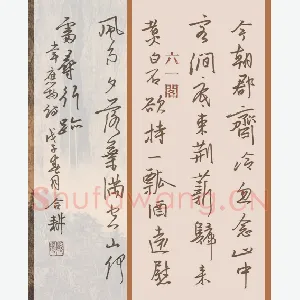 今朝郡齋冷忽念山中
客澗底束荆薪歸來
煮白石欲持一瓢酒遠慰
風雨夕落葉滿空山何
處尋行跡
韋應物詩戊子春月
六一閣
Shufawang.CN